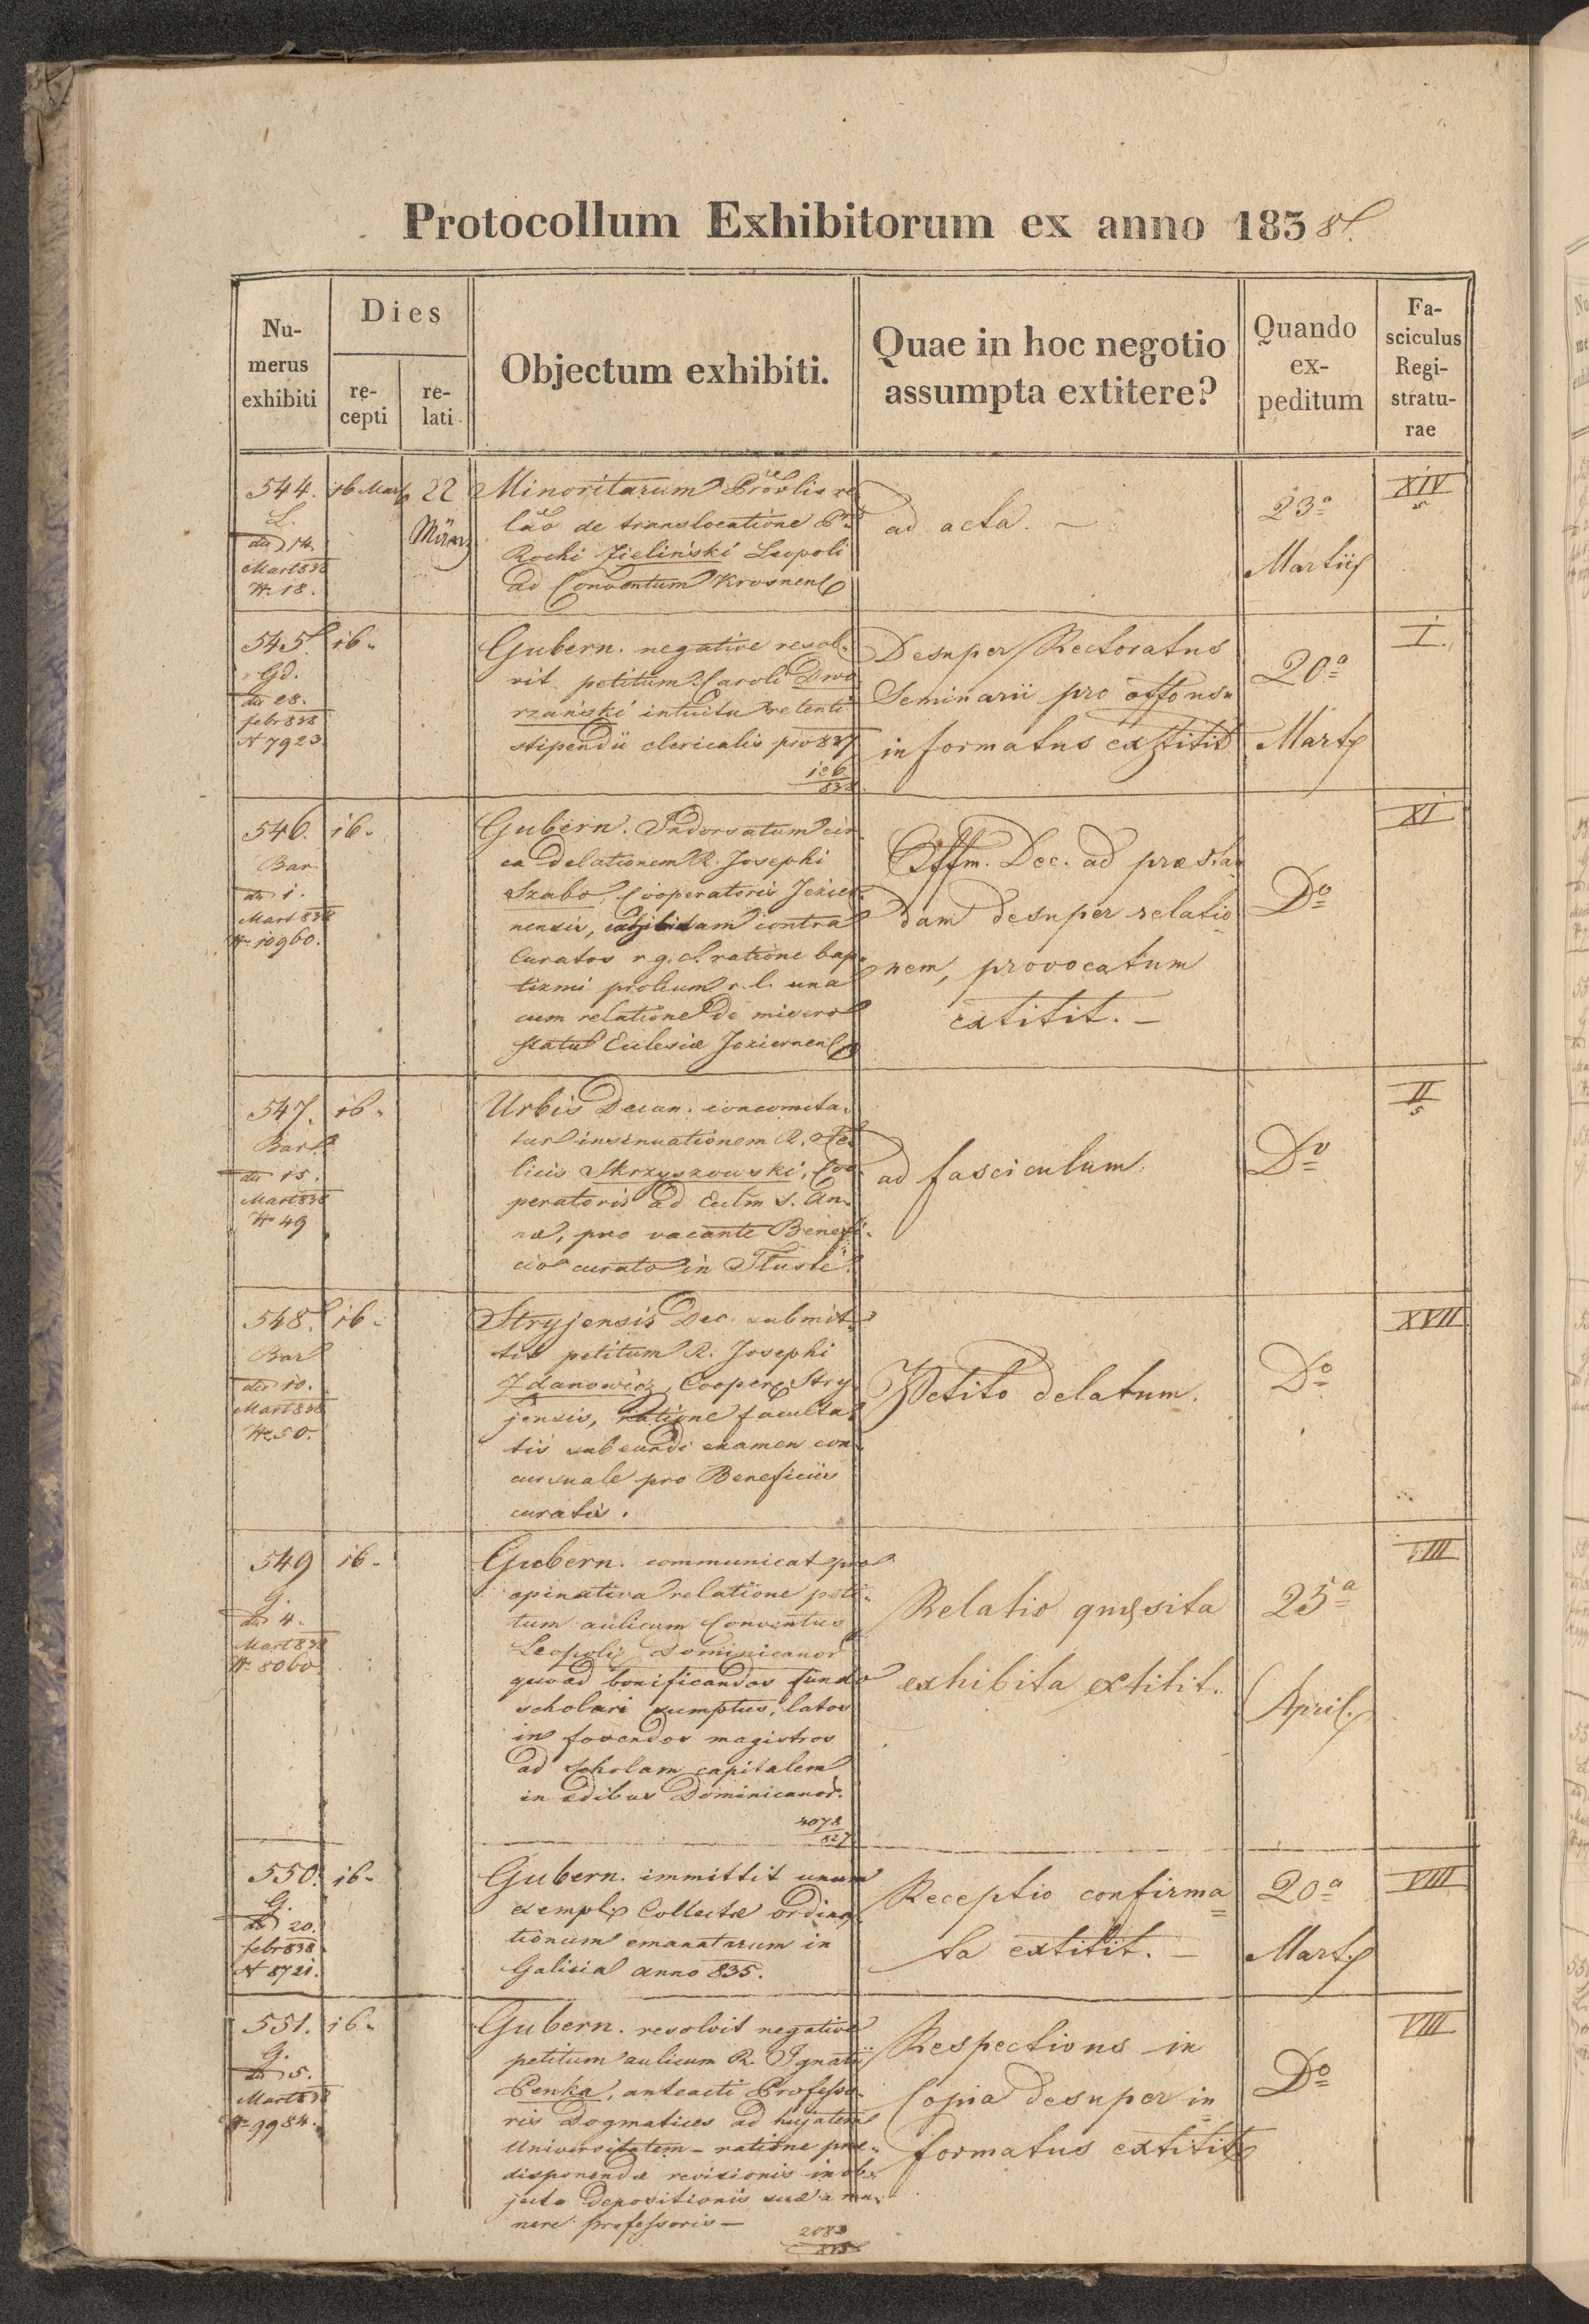 Protocollum Exhibitorum ex anno 1838.
Numerus exhibiti
Dies
recepti
relati
Objectum exhibiti.
Quae in hoc negotio assumpta extitere?
Quando expeditum
Fasciculus Registraturae
544.
L.
dto 14.
Mart 838
N. 18.
16 Mart
22
März
Minoritarum
de translocatione
Rochi Zieliński Leopoli
ad Conventum Krosnens
ad acta. –
23a
Martii
XIV
5
545
Gd.
dto 28.
febr 838
N 7923
16.
Gubern. negative resol-
vit petitum Caroli Dwo
rzański intuitu retenti
stipendii clericalis pro 837
106
838
Desuper Rectoratus
Seminarii pro
informatus extitit
20a
Mart
I.
546.
Bar
dto 1.
Mart 838
N. 10960.
16.
Gubern. Indorsatum cir
ca delationem R. Josephi
Szabo, Cooperatoris Jezier-
nensis, exhibitam contra
Curatos r. g. c. ratione bap-
tizmi prolium r. l. una
cum relatione de misero
statu Ecclesiæ Jeziernens
Offm. Dec. ad præstan
dam desuper relatio
nem, provocatum
extitit. –
Do
XI
547.
Bar
dto 15.
Mart 838
N. 49
16.
Urbis Decan. concomita-
tur insinuationem R. Fe-
licis Skrzyszowski, Coo-
peratoris ad Ecclm S. An-
næ, pro vacante Benefi-
cio curato in Tłuste.
ad fasciculum.
Do
II
5
548.
Bar
dto 10.
Mart 838
N. 50.
16.
Stryjensis Dec. submit-
tit petitum R. Josephi
Zdanowicz, Cooper Stry
jensis, ratione faculta-
tis subeundi examen con-
cursuale pro Beneficiis
curatis.
Petito delatum.
Do
XVII
549
G.
dto 4.
Mart 838
N. 8060
16.
Gubern. communicat pro
opinativa relatione peti-
tum aulicum Conventus
Leopoli Dominicanor
quoad bonificandos fundo
scholari sumptus, latos
in fovendos magistros
ad scholam capitalem
in ædibus Dominicanor.
4078
827
Relatio quæsita
exhibita extitit.
25a
April.
VIII
550.
G.
dto 20.
febr 838
N 8721.
16.
Gubern. immittit unum
exempl. Collectæ ordina-
tionum emanatarum in
Galicia anno 835.
Receptio confirma
ta extitit. –
20a
Mart
VIII
551.
G.
dto 5.
Mart 838
N. 9984.
16.
Gubern. resolvit negative
petitum aulicum R. Ignatii
Penka, anteacti Professo-
ris Dogmatices ad hujatem
Universitatem – ratione præ-
disponendæ revisionis in ob-
jecto depositionis suæ a mu-
nere professoris –
2083
835
Respectivus in
Copia desuper in
formatus extitit
Do
VIII